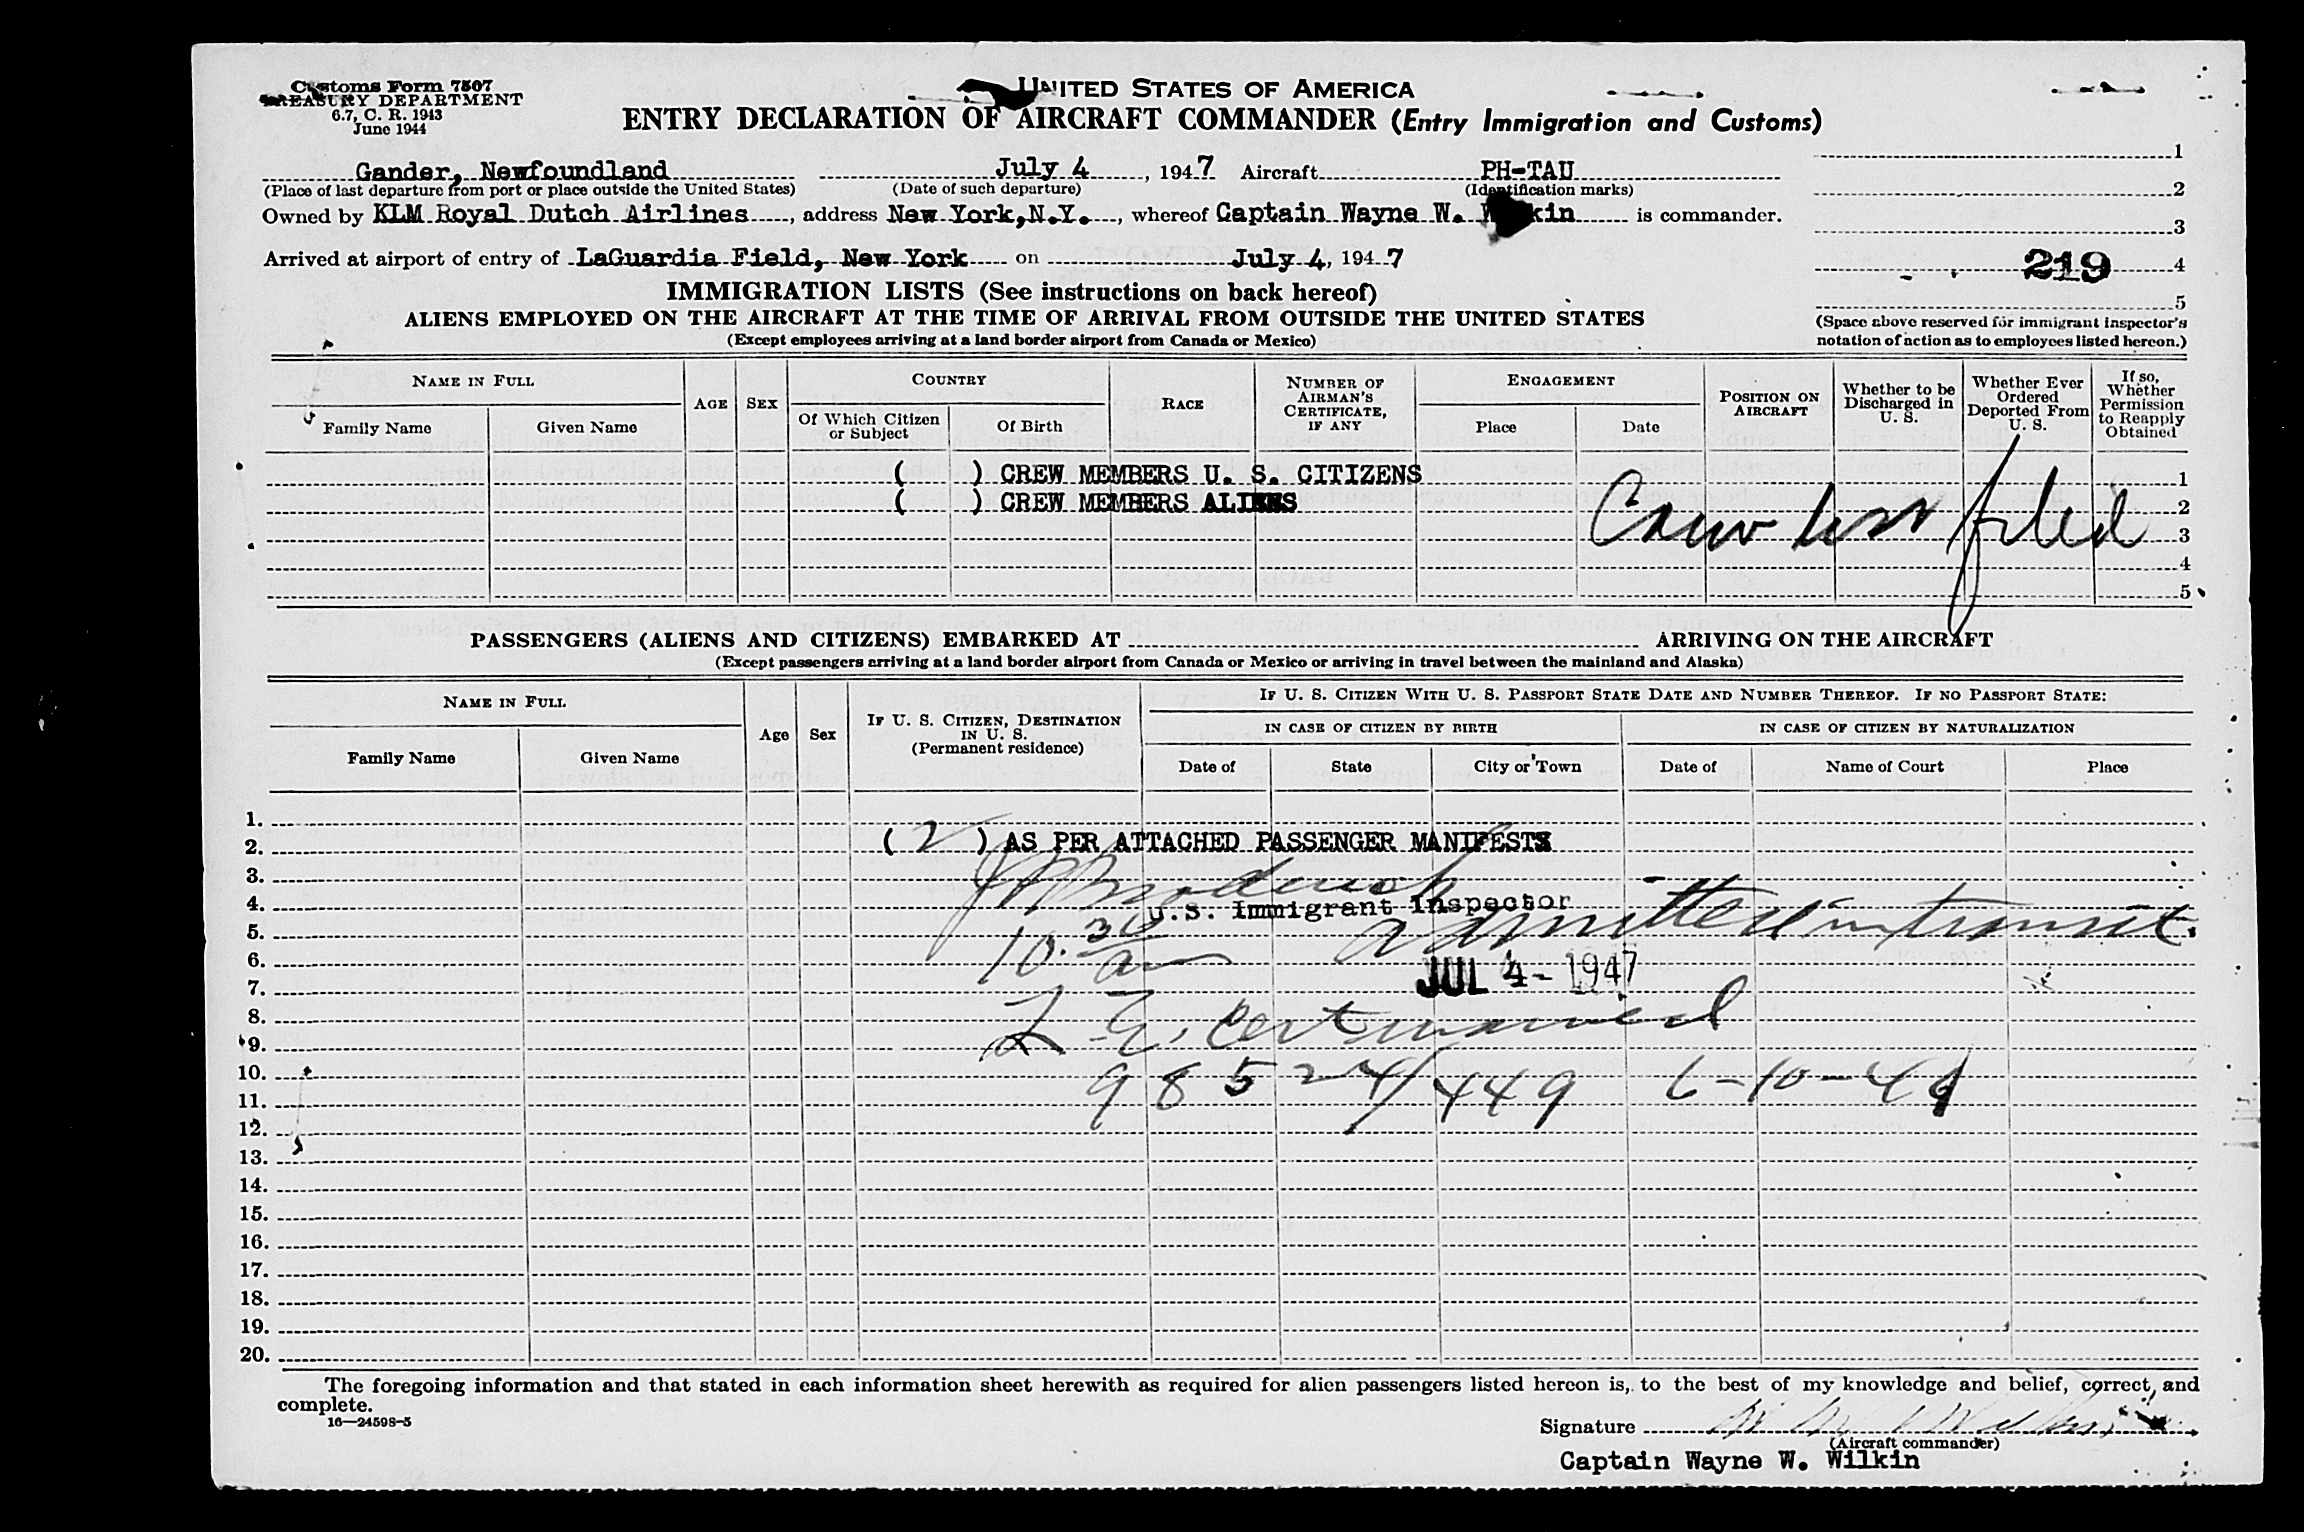 Customs Form 7507
TREASURY DEPARTMENT
6.7, C. R. 1943
June 1944
UNITED STATES OF AMERICA
ENTRY DECLARATION OF AIRCRAFT COMMANDER (Entry Immigration and Customs)
Gander, Newfoundland July 4, 1947 Aircraft PH-TAU
(Place of last departure from port or place outside the United States) (Date of such departure) (Identification marks)
Owned by KLM Royal Dutch Airlines, address New York, N.Y., whereof Captain Wayne W. Wilkin is commander.
Arrived at airport of entry of LaGuardia Field, New York on July 4, 1947
1
2
3
219 4
5
(Space above reserved for immigrant inspector's
notation of action as to employees listed hereon.)
IMMIGRATION LISTS (See instructions on back hereof)
ALIENS EMPLOYED ON THE AIRCRAFT AT THE TIME OF ARRIVAL FROM OUTSIDE THE UNITED STATES
(Except employees arriving at a land border airport from Canada or Mexico)
NAME IN FULL
Family Name Given Name
AGE
SEX
COUNTRY
Of Which Citizen or Subject
Of Birth
RACE
NUMBER OF AIRMAN'S CERTIFICATE, IF ANY
ENGAGEMENT
Place Date
POSITION ON AIRCRAFT
Whether to be Discharged in U. S.
Whether Ever Ordered Deported From U. S.
If so, Whether Permission to Reapply Obtained
( ) CREW MEMBERS U. S. CITIZENS 1
( ) CREW MEMBERS ALIENS 2
Crew list filed 3
4
5
PASSENGERS (ALIENS AND CITIZENS) EMBARKED AT ARRIVING ON THE AIRCRAFT
(Except passengers arriving at a land border airport from Canada or Mexico or arriving in travel between the mainland and Alaska)
NAME IN FULL
Family Name Given Name
Age
Sex
IF U. S. CITIZEN, DESTINATION IN U. S.
(Permanent residence)
IF U. S. CITIZEN WITH U. S. PASSPORT STATE DATE AND NUMBER THEREOF. IF NO PASSPORT STATE:
IN CASE OF CITIZEN BY BIRTH IN CASE OF CITIZEN BY NATURALIZATION
Date of State City or Town Date of Name of Court Place
1.
2. ( 2 ) AS PER ATTACHED PASSENGER MANIFESTS
3.
4. U.S. Immigrant Inspector
5. 10.30 am admitted in transit.
6.
7. JUL 4 - 1947
8.
9.
10. 98524/449 6-10-4
11.
12.
13.
14.
15.
16.
17.
18.
19.
20.
The foregoing information and that stated in each information sheet herewith as required for alien passengers listed hereon is, to the best of my knowledge and belief, correct and
complete.
16—24598-5
Signature
(Aircraft commander)
Captain Wayne W. Wilkin